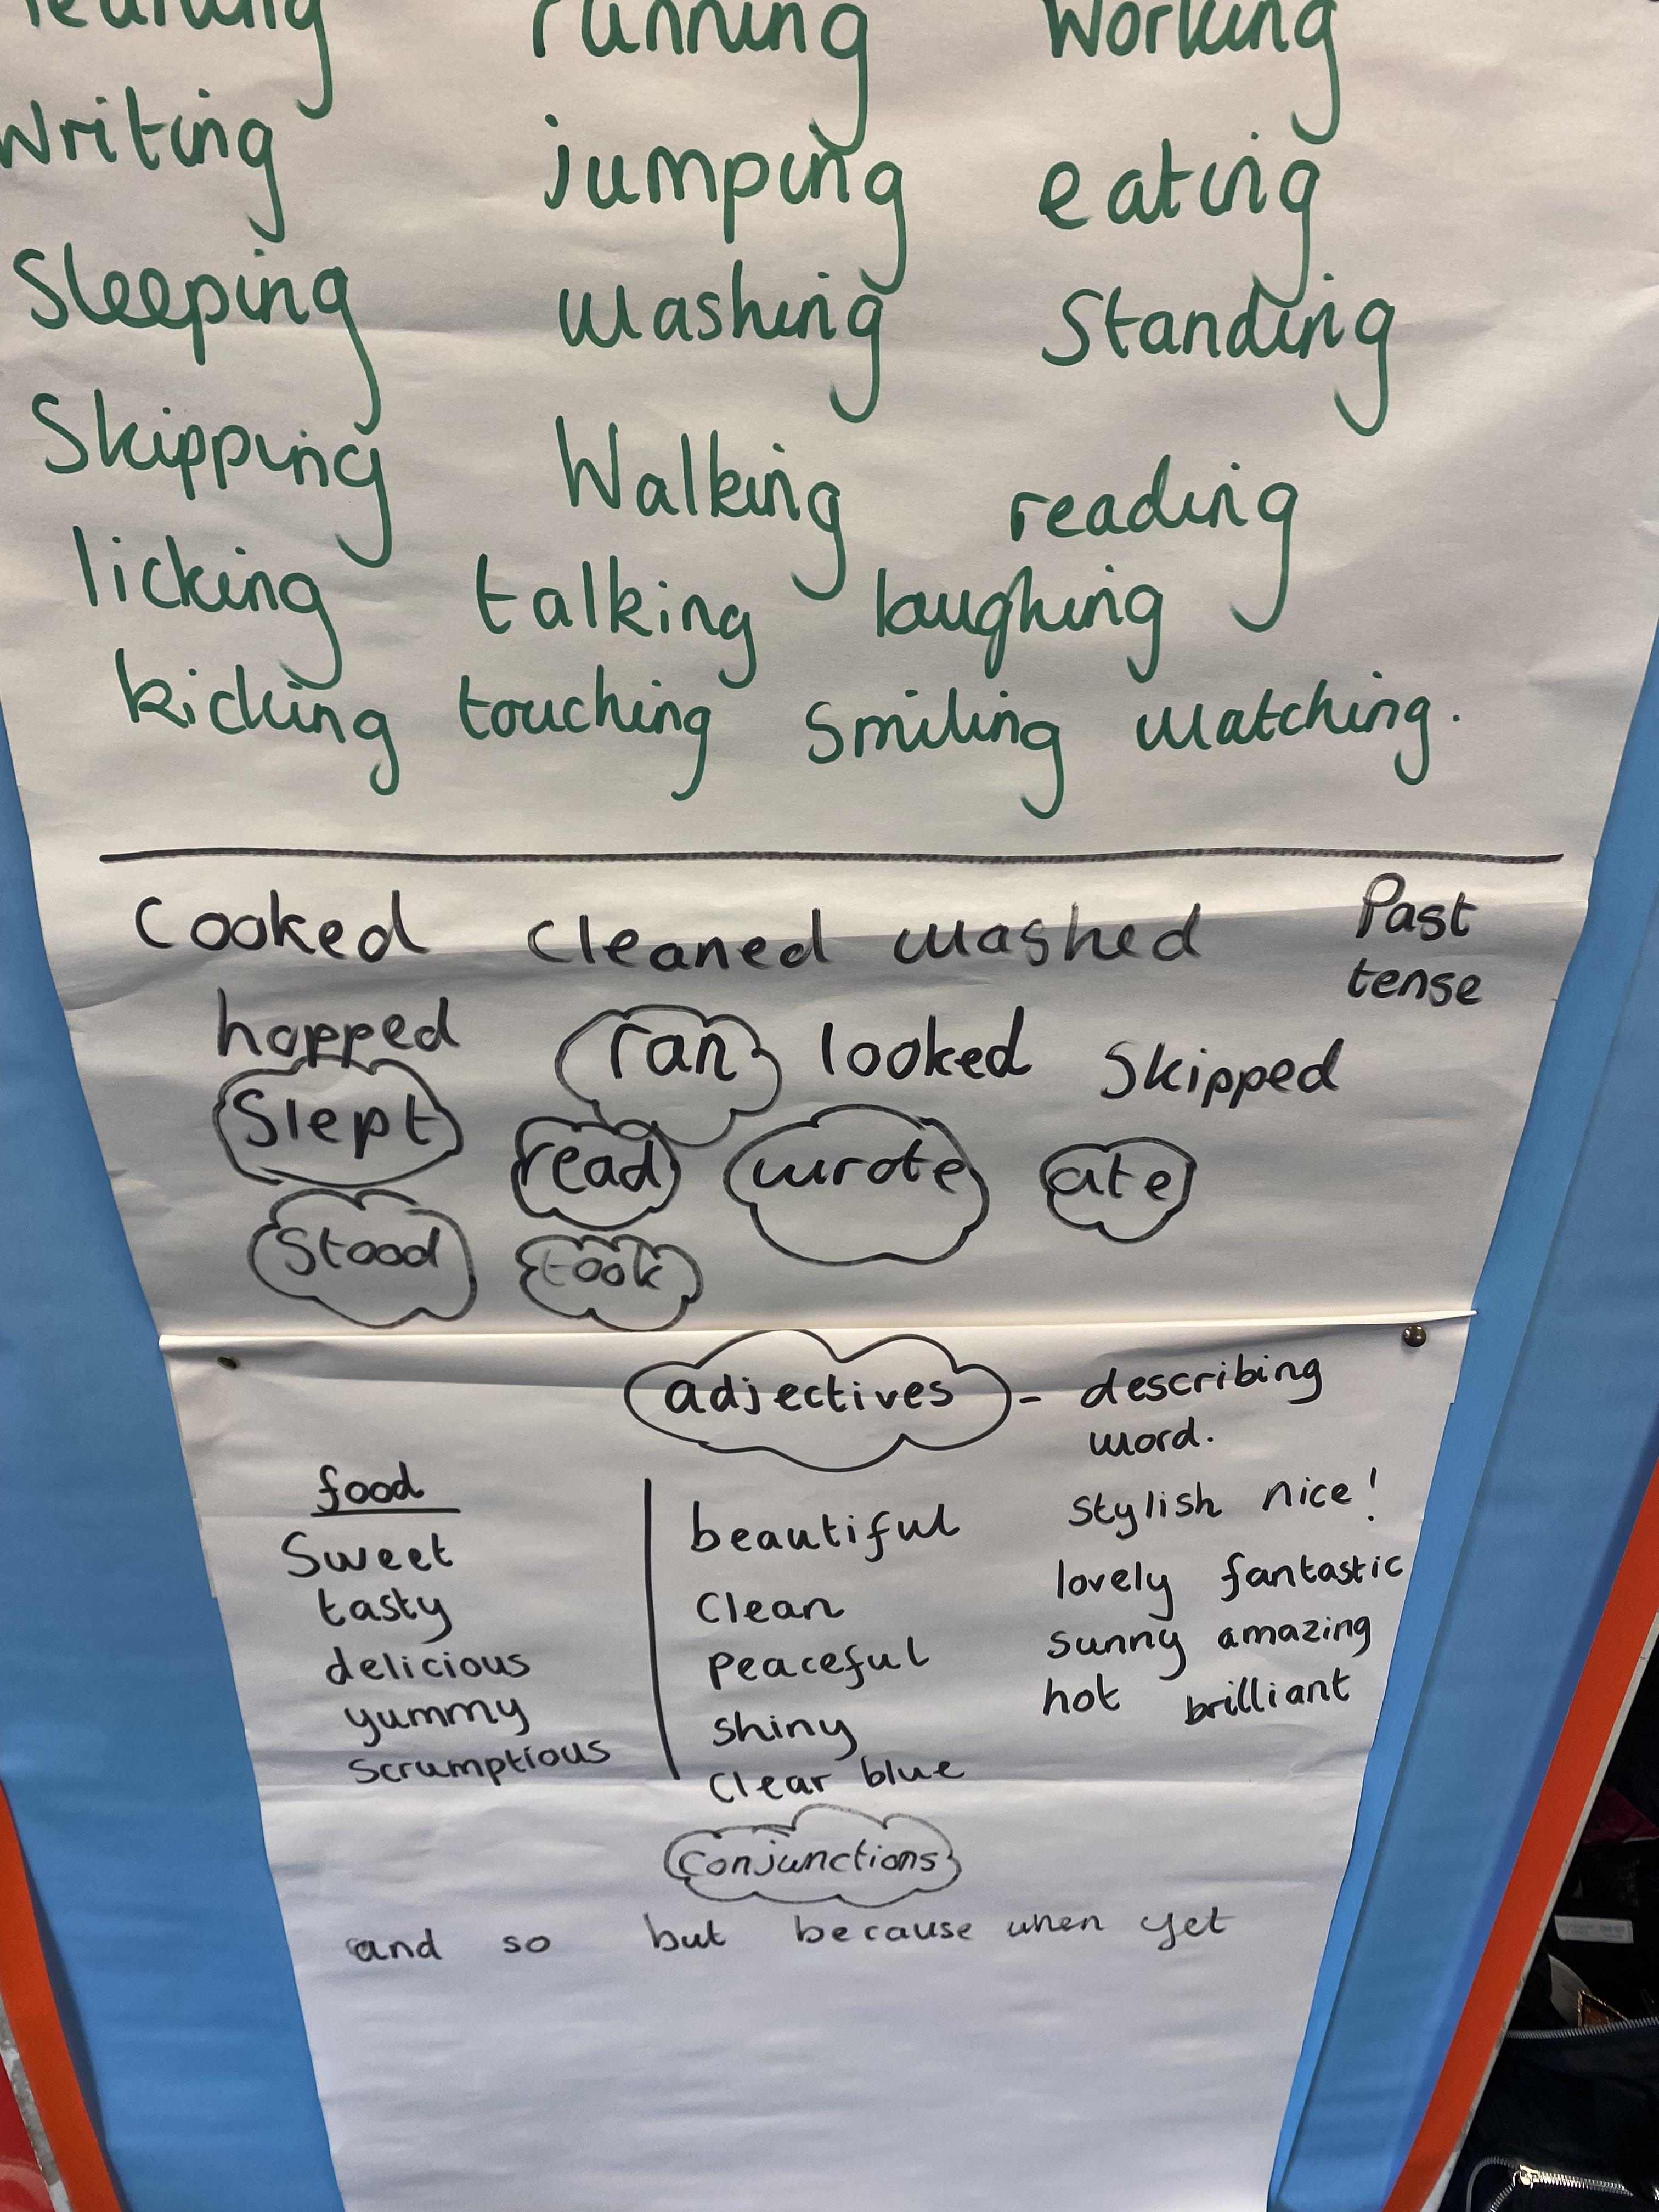 running working
writing jumping eating
Sleeping washing Standing
Skipping Walking reading
licking talking laughing
kicking touching Smiling watching.
Cooked cleaned washed Past
tense
hopped ran looked Skipped
Slept read wrote ate
Stood took
adjectives - describing
word.
food
Sweet
tasty
delicious
yummy
scrumptious
beautiful
clean
peaceful
shiny
clear blue
stylish nice!
lovely fantastic
sunny amazing
hot brilliant
conjunctions
and so but because when yet